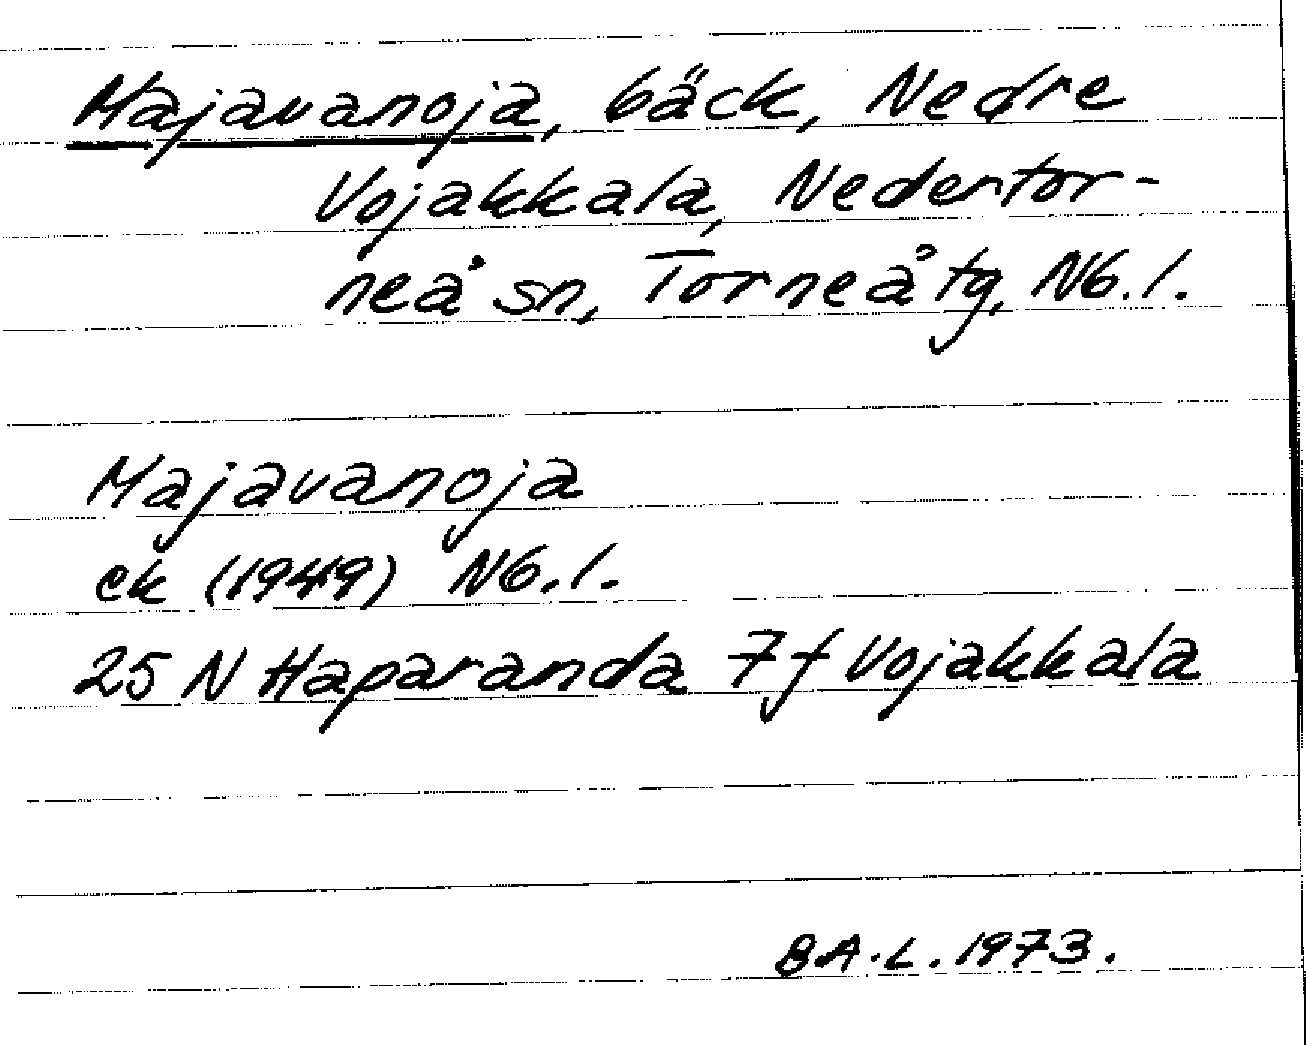 Majavanoja, bäck, Nedre
Vojakkala, Nedertor-
neå sn, Torneå tg, Nb.l.
Majavanoja
ek (1949) Nb.l.
25 N Haparanda 7f Vojakkala
B.A.L. 1973.